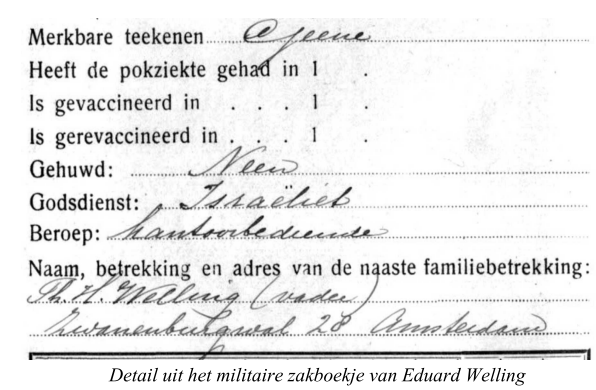 Merkbare teekenen Geene
Heeft de pokziekte gehad in 1 .
Is gevaccineerd in . . . 1 .
Is gerevaccineerd in . . . 1 .
Gehuwd: Neen
Godsdienst: Israëliet
Beroep: kantoorbediende
Naam, betrekking en adres van de naaste familiebetrekking:
Th. H. Welling (vader)
Zwanenburgwal 28 Amsterdam
Detail uit het militaire zakboekje van Eduard Welling